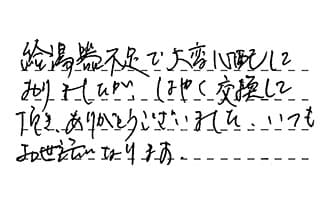 給湯器不足で大変心配して
おりましたが、はやく交換して
頂き、ありがとうございました、いつも
お世話になります。